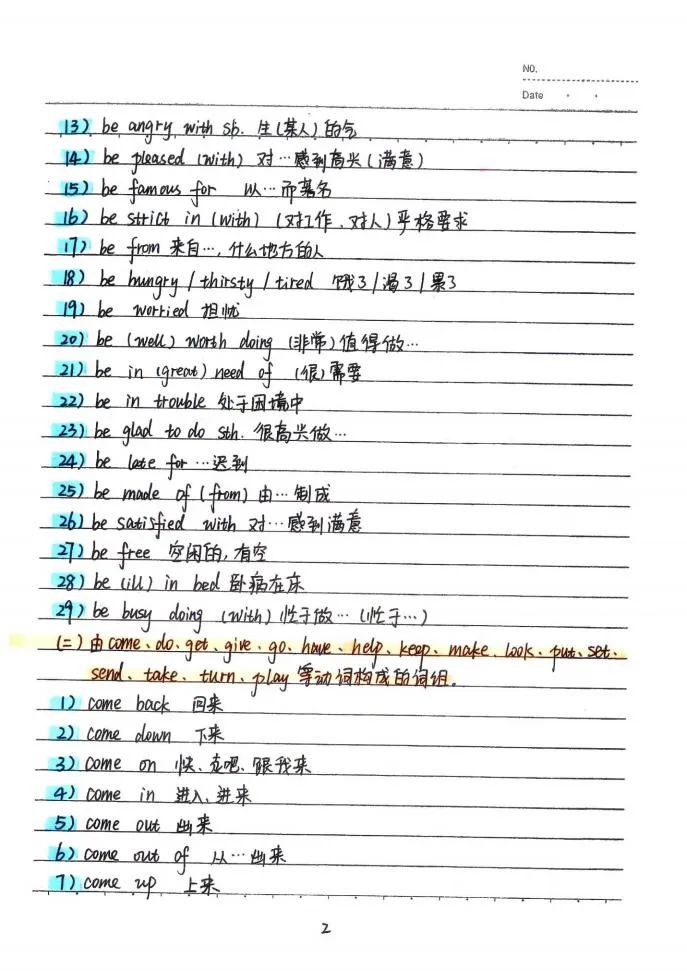 NO.
Date
13) be angry with sb. 生(某人)的气
14) be pleased (with) 对…感到高兴(满意)
15) be famous for 以…而著名
16) be strict in (with) (对工作、对人)严格要求
17) be from 来自…, 什么地方的人
18) be hungry / thirsty / tired 饿了/渴了/累了
19) be worried 担忧
20) be (well) worth doing (非常)值得做…
21) be in (great) need of (很)需要
22) be in trouble 处于困境中
23) be glad to do sth. 很高兴做…
24) be late for …迟到
25) be made of (from) 由…制成
26) be satisfied with 对…感到满意
27) be free 空闲的, 有空
28) be (ill) in bed 卧病在床
29) be busy doing (with) 忙于做…(忙于…)
(二) 由come、do、get、give、go、have、help、keep、make、look、put、set、
send、take、turn、play 等动词构成的词组。
1) come back 回来
2) come down 下来
3) come on 快、走吧、跟我来
4) come in 进入、进来
5) come out 出来
6) come out of 从…出来
7) come up 上来
2